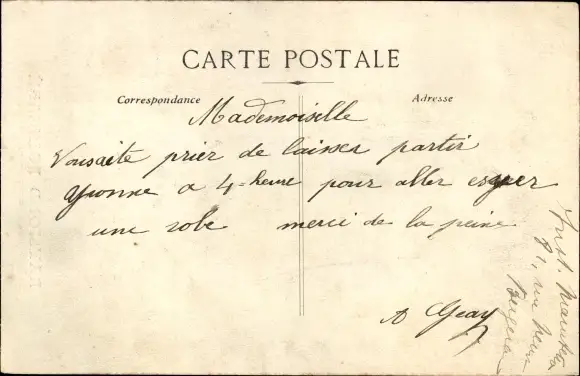 CARTE POSTALE
Correspondance
Adresse
Mademoiselle
prier de laisser partir
Yvonne a 4-heure pour aller
une robe merci de la peine
A Geay
Inst.